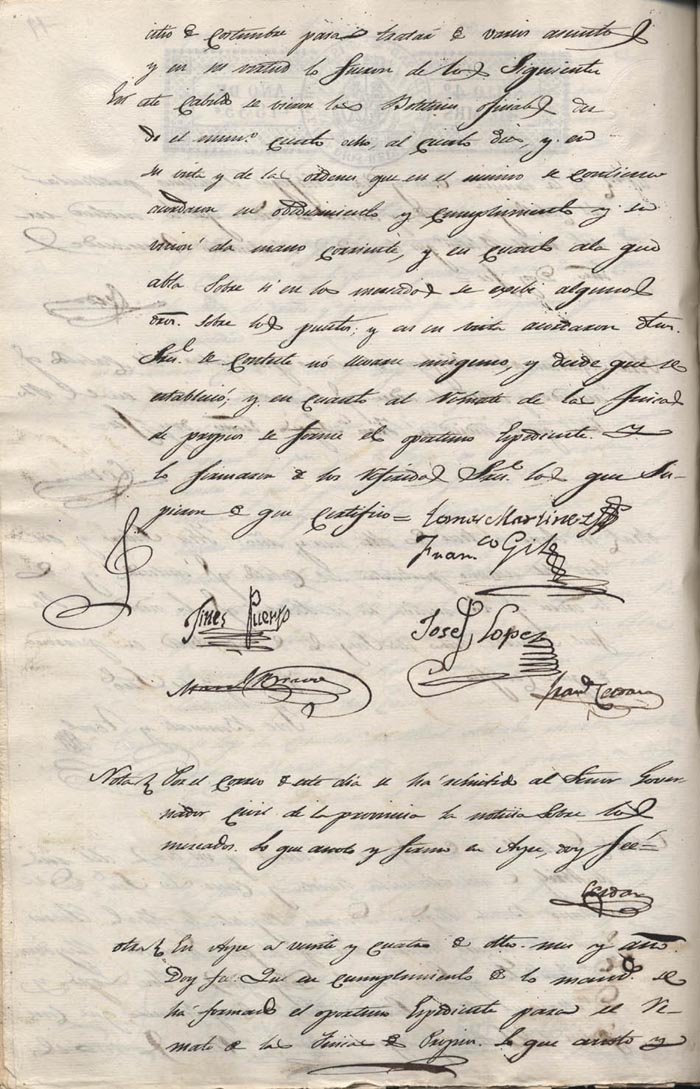 sitio de costumbre para tratar de varios asuntos
y en su virtud lo fueron de los Siguientes
En este Cabildo se vieron los Boletines oficiales des
de el num.º cuarto ocho, al cuarto diez, y en
su vista y de las ordenes que en el mismo se contienen
acordaron su obedecimiento y cumplimiento y se
unirán ala mano corriente, y en cuanto ala que
abla sobre si en los mercados se exije algunos
dros. sobre los puestos; y en su vista acordaron dhos.
Sres. se conteste no llevarse ningunos, y desde que se
estableció; y en cuanto al Remate de las fincas
de propios se forme el oportuno Espediente. Y
lo firmaron de los referidos Sres. los que Su-
pieron de que Certifico=
Tomas Martinez
Fran.co Gil
Gines Puerto
Jose Lopez
Man.l Bravo
Cerdan
Nota Por el Correo de este dia se ha remitido al Señor Gover-
nador Civil de la provincia la noticia sobre los
mercados. Lo que anoto y firmo en Ayer, doy feé=
Cerdan
otra En Ayer a veinte y cuatro de dho. mes y año.
Doy fe: Que en cumplimiento de lo mand.º se
ha formado el oportuno Espediente para el Re-
mate de las Fincas de Propios. Lo que anoto y